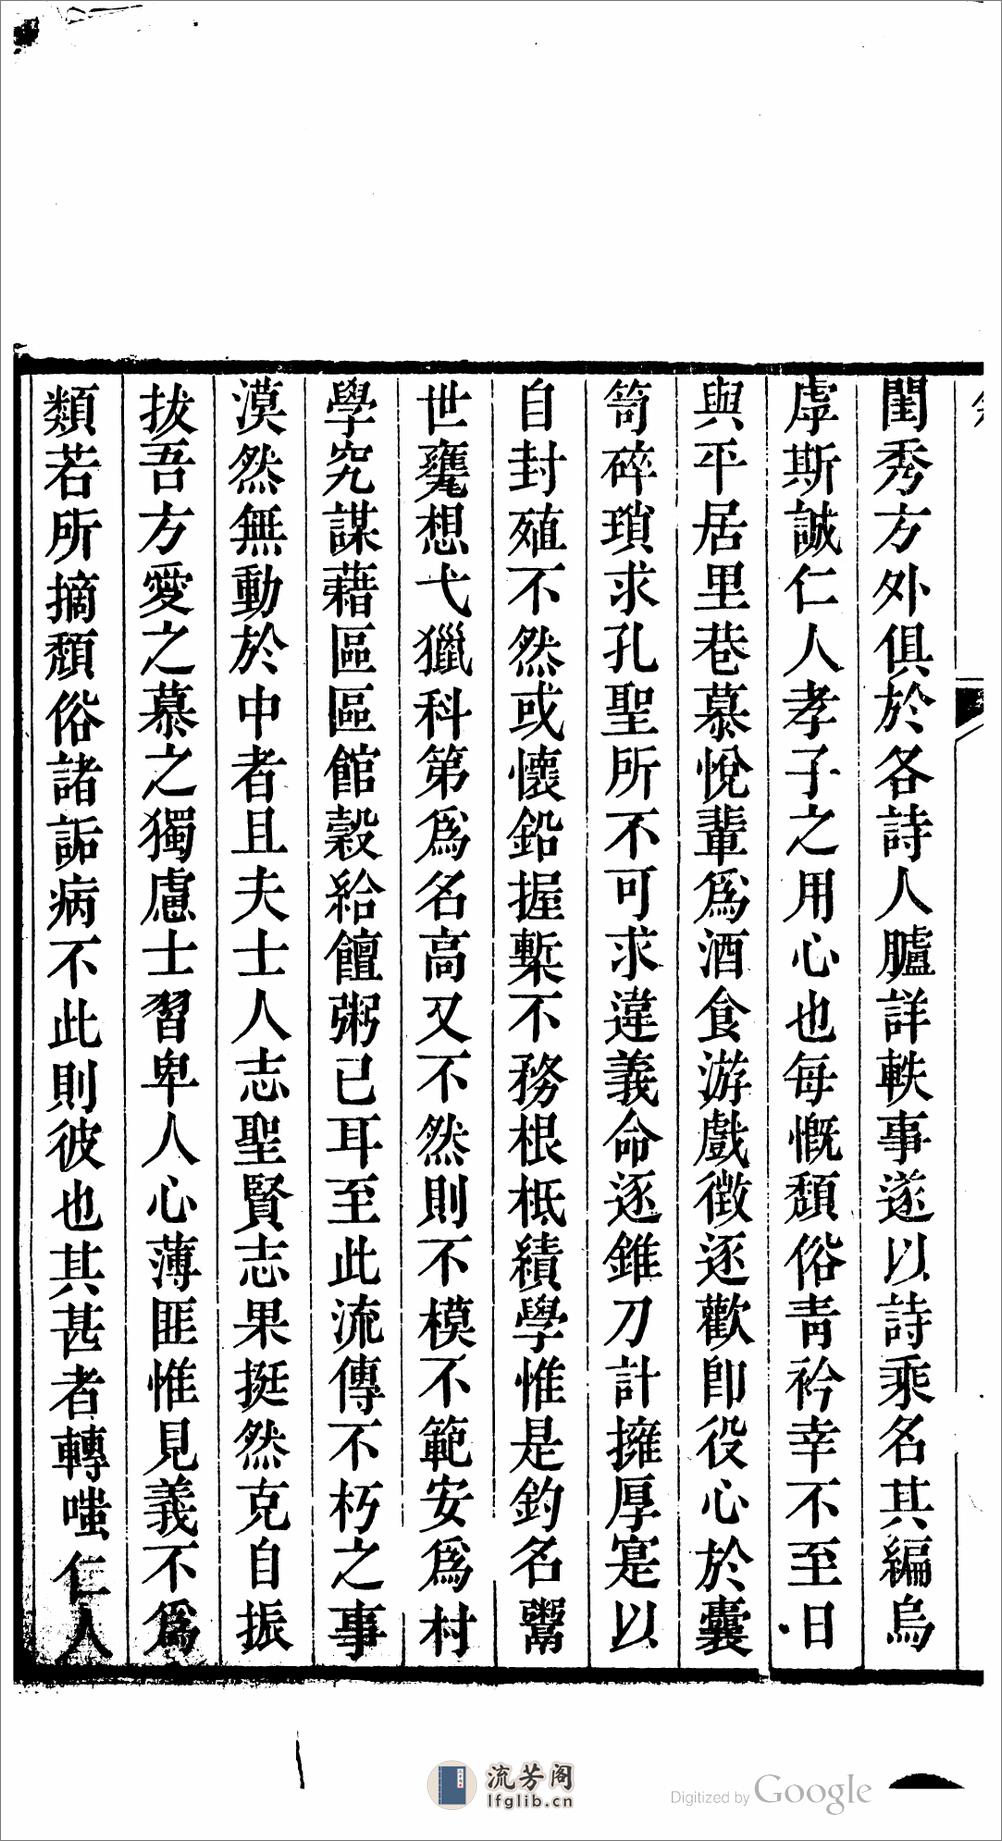 閨秀方外俱於各詩人臚詳軼事遂以詩乘名其編烏
虖斯誠仁人孝子之用心也每慨頽俗青衿幸不至日
與平居里巷慕悅輩爲酒食游戲徵逐歡卽役心於囊
笥碎瑣求孔聖所不可求違義命逐錐刀計擁厚寔以
自封殖不然或懷鉛握槧不務根柢績學惟是釣名鬻
世蘷想弋獵科第爲名高又不然則不模不範安爲村
學究謀藉區區館穀給饘粥已耳至此流傳不朽之事
漠然無動於中者且夫士人志聖賢志果挺然克自振
拔吾方愛之慕之獨慮士習卑人心薄匪惟見義不爲
類若所摘頽俗諸詬病不此則彼也其甚者轉嗤仁人
流芳阁
lfglib.cn
Digitized by Google